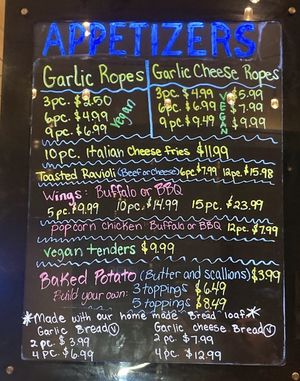 APPETIZERS
Garlic Ropes
3pc. $2.50
6pc. $4.99
9pc. $6.99
vegan
Garlic Cheese Ropes
3pc. $4.99 $5.99
6pc. $6.99 $7.99
9pc $9.49 $9.99
VEGAN
10 pc. Italian Cheese Fries $11.99
Toasted Ravioli (Beef or Cheese) 6pc $7.99 12pc. $15.98
Wings: Buffalo or BBQ
5 pc. $9.99 10pc. $14.99 15 pc. $23.99
popcorn chicken Buffalo or BBQ 12pc. $7.99
vegan tenders $9.99
Baked Potato (Butter and scallions) $3.99
Build your own: 3 toppings $6.49
5 toppings $8.49
*Made with our home made Bread loaf*
Garlic Bread V
2 pc. $3.99
4 pc. $6.99
Garlic cheese Bread V
2 pc. $7.99
4 pc. $12.99